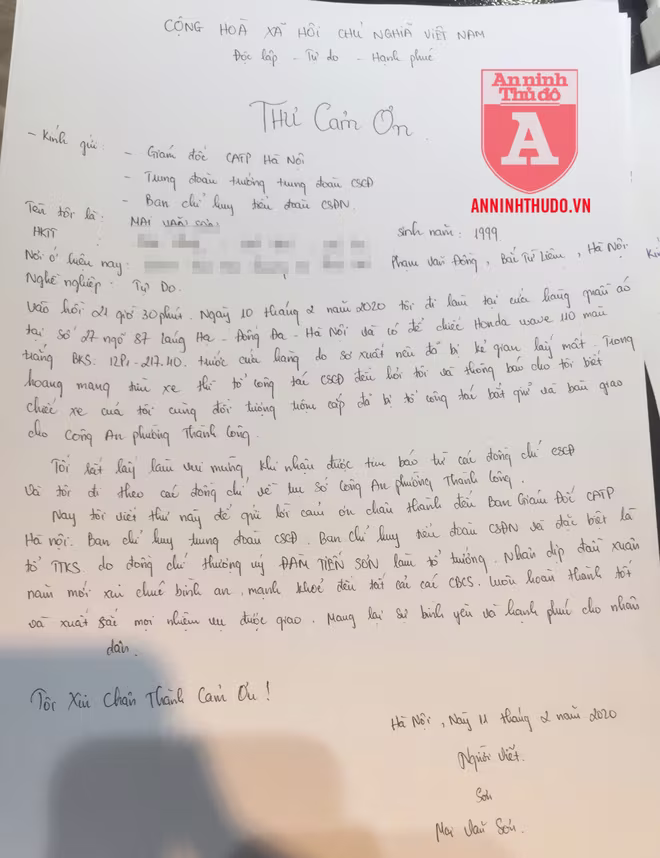 CỘNG HOÀ XÃ HỘI CHỦ NGHĨA VIỆT NAM
Độc lập - Tự do - Hạnh phúc
An ninh
Thủ đô
A
ANNINHTHUDO.VN
THƯ Cảm Ơn
- Kính gửi: - Giám đốc CATP Hà Nội
- Trung đoàn trưởng trung đoàn CSCĐ
- Ban chỉ huy tiểu đoàn CSĐN.
Tên tôi là: MAI VĂN SƠN sinh năm: 1999
HKTT
Nơi ở hiện nay: Phạm Văn Đồng, Bắc Từ Liêm, Hà Nội
Nghề nghiệp: Tự Do.
Vào hồi 21 giờ 30 phút. Ngày 10 tháng 2 năm 2020 tôi đi làm tại cửa hàng quần áo
tại số 27 ngõ 87 Láng Hạ - Đống Đa - Hà Nội và có để chiếc Honda wave 110 màu
trắng BKS: 12P1-217.40. trước cửa hàng do sơ xuất nên đã bị kẻ gian lấy mất. Trong
hoang mang tìm xe thì tổ công tác CSCĐ đến hỏi tôi và thông báo cho tôi biết
chiếc xe của tôi cùng đối tượng trộm cắp đã bị tổ công tác bắt giữ và bàn giao
cho Công An phường Thành Công.
Tôi rất lấy làm vui mừng khi nhận được tin báo từ các đồng chí CSCĐ
và tôi đi theo các đồng chí về trụ sở Công An phường Thành Công.
Nay tôi viết thư này để gửi lời cảm ơn chân thành đến Ban Giám Đốc CATP
Hà Nội. Ban chỉ huy trung đoàn CSCĐ. Ban chỉ huy tiểu đoàn CSĐN và đặc biệt là
tổ TTKS do đồng chí thượng úy ĐÀM TIẾN SƠN làm tổ trưởng. Nhân dịp đầu xuân
năm mới xin chúc bình an, mạnh khoẻ đến tất cả các CBCS. Luôn hoàn thành tốt
và xuất sắc mọi nhiệm vụ được giao. Mang lại sự bình yên và hạnh phúc cho nhân
dân.
Tôi Xin Chân Thành Cảm Ơn!
Hà Nội, Ngày 11 tháng 2 năm 2020
Người viết.
Sơn
Mai Văn Sơn.